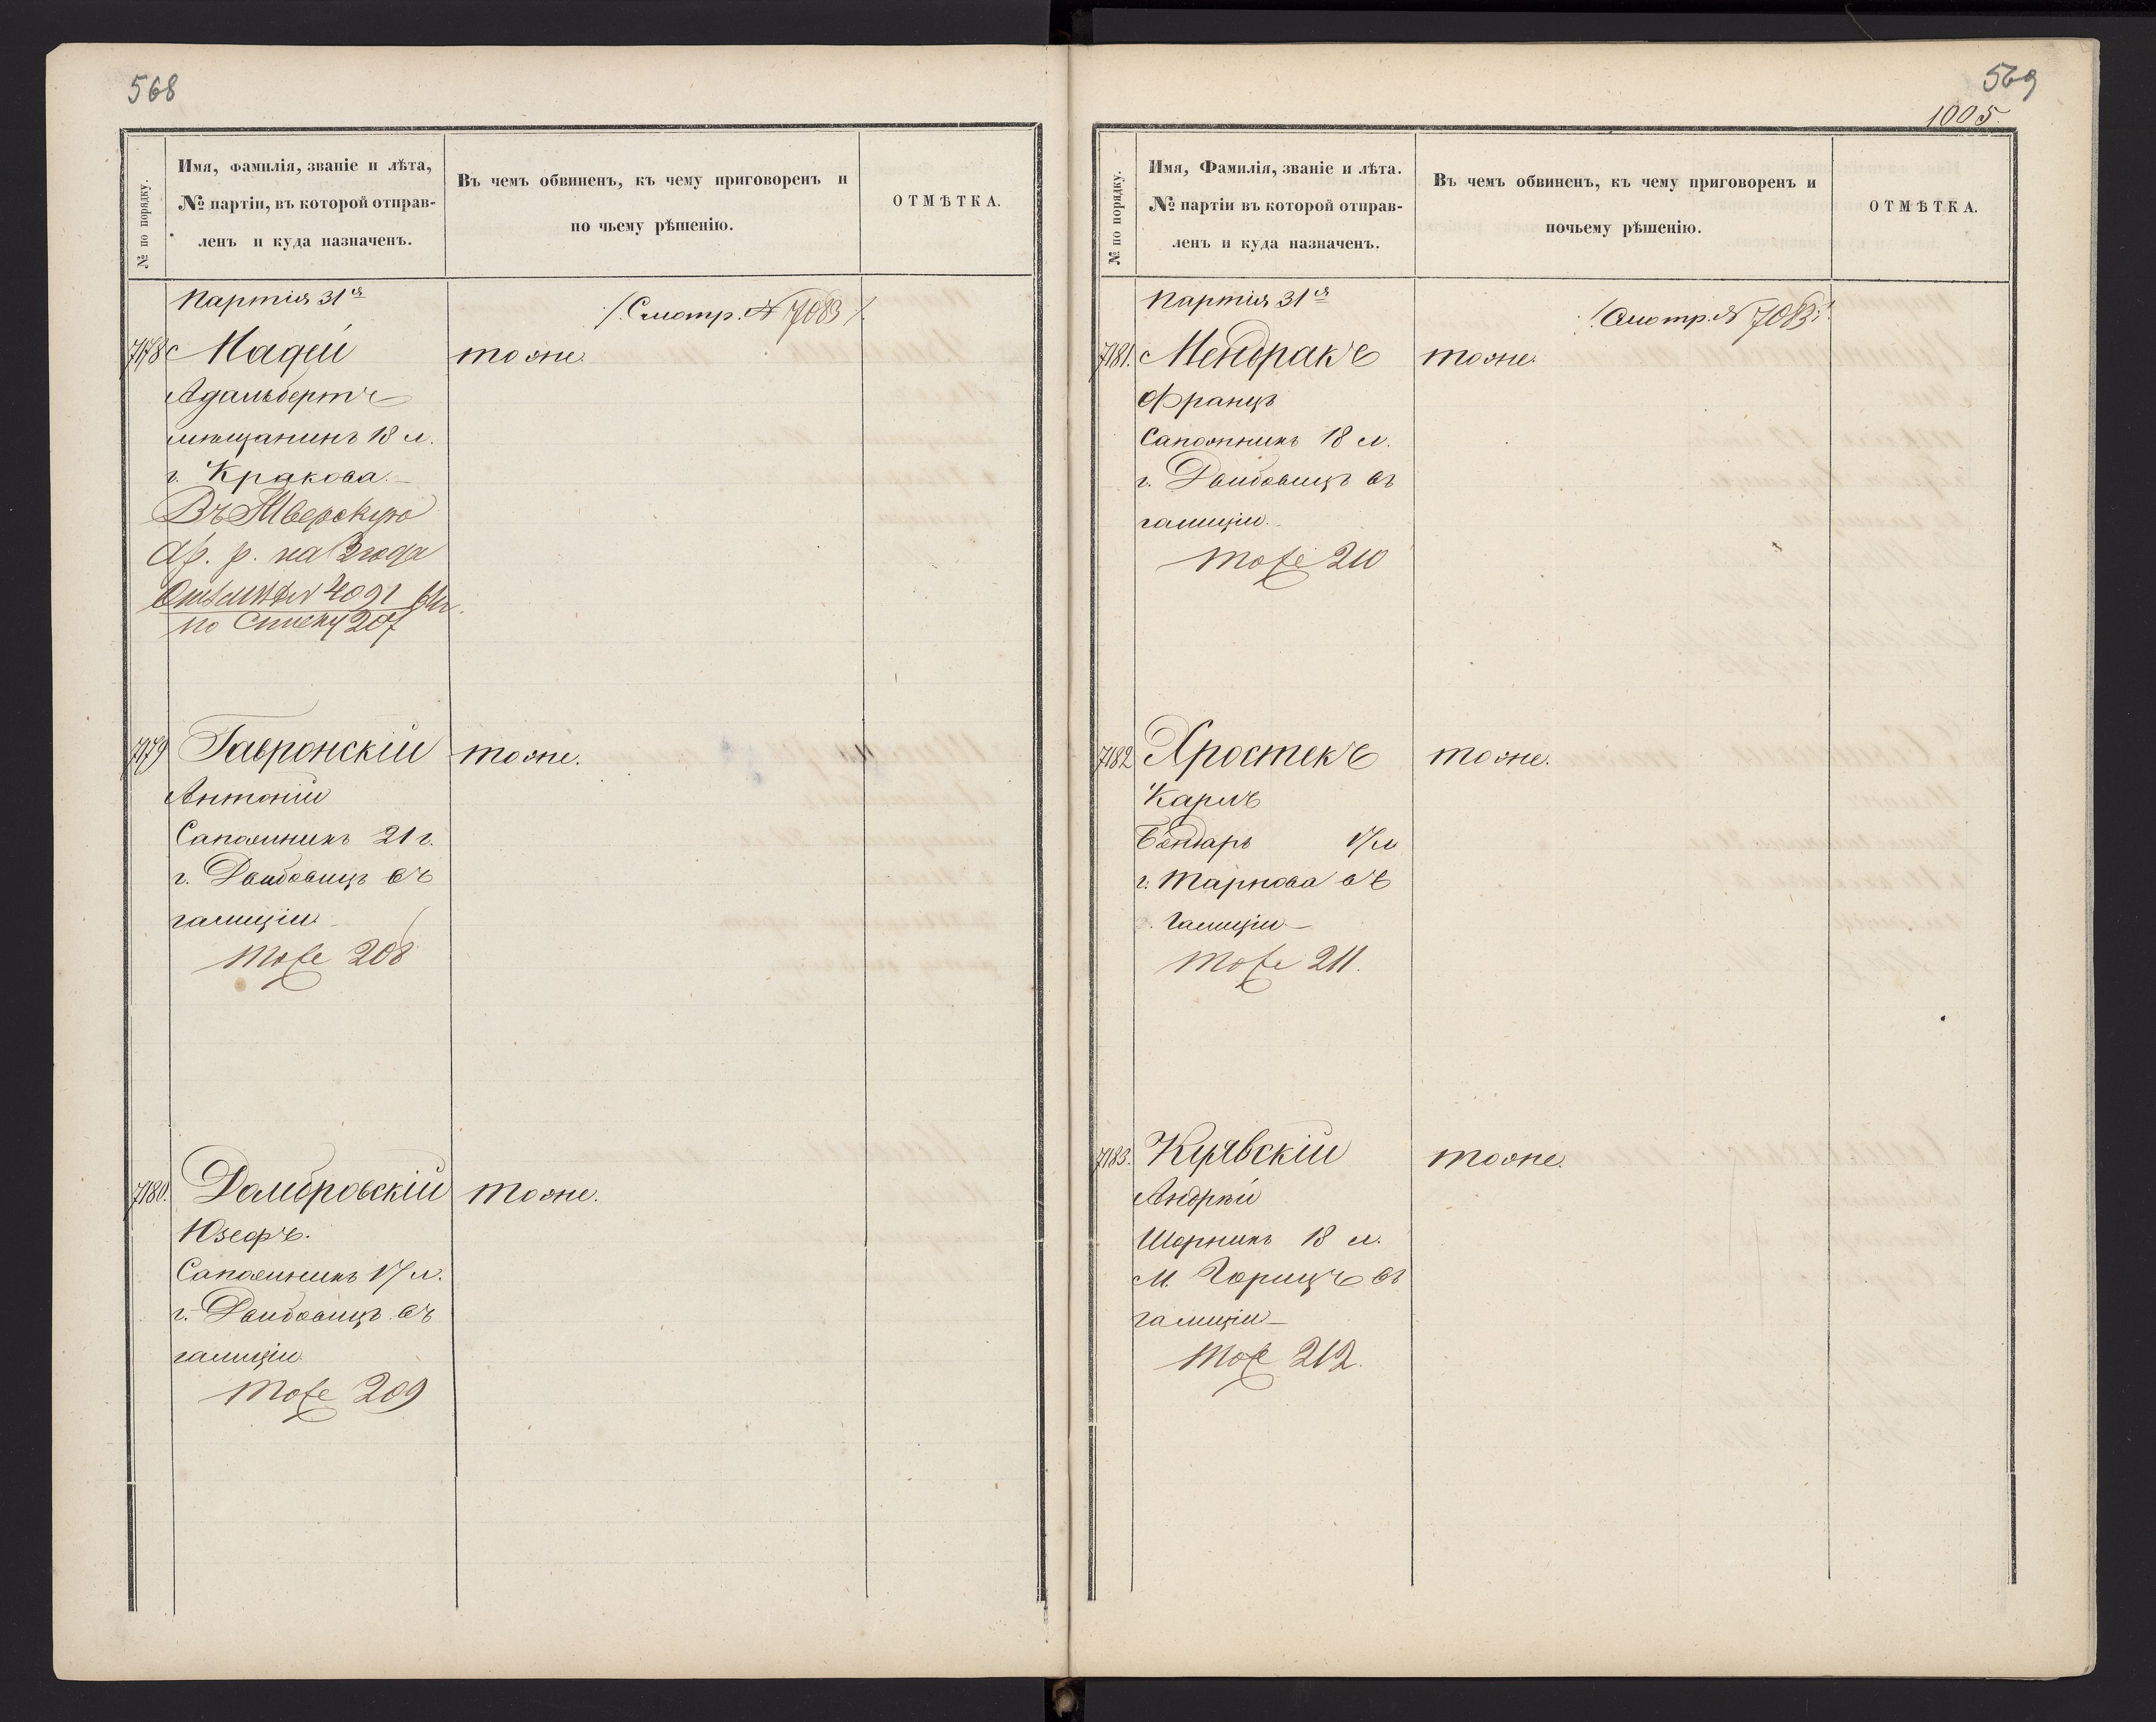 568
№ по порядку.
Имя, фамилія, званіе и лѣта,
№ партіи, въ которой отправ-
ленъ и куда назначенъ.
Въ чемъ обвиненъ, къ чему приговоренъ и
по чьему рѣшенію.
ОТМѢТКА.
Партія 31я
/.Смотр. № 7083/.
7178 Мадей
тоже.
Адальбертъ
мѣщанинъ 18 л.
г. Кракова.
Въ Тверскую
Ар. р. на 3 года
4091
по списку 207
7179 Гавронскій
тоже.
Антоній
Сапожникъ 21 г.
г. въ
галиціи
тоже 208
7180. Домбровскій
тоже.
Юзефъ.
Сапожникъ 17 л.
г. въ
галиціи
тоже 209
569
1005.
№ по порядку.
Имя, Фамилія, званіе и лѣта.
№ партіи въ которой отправ-
ленъ и куда назначенъ.
Въ чемъ обвиненъ, къ чему приговоренъ и
почьему рѣшенію.
ОТМѢТКА.
Партія 31я
/.Смотр. № 7083./.
7181. Мендракъ
тоже.
Францъ
Сапожникъ 18 л.
г. въ
галиціи.
тоже 210
7182 Хростекъ
тоже.
Карлъ
Бондарь 17 л
г. Тарнова въ
Галиціи
тоже 211.
7183. Куявскій
тоже.
Андрѣй
Шорникъ 18 л.
м. Горицъ въ
галиціи
тоже 212.